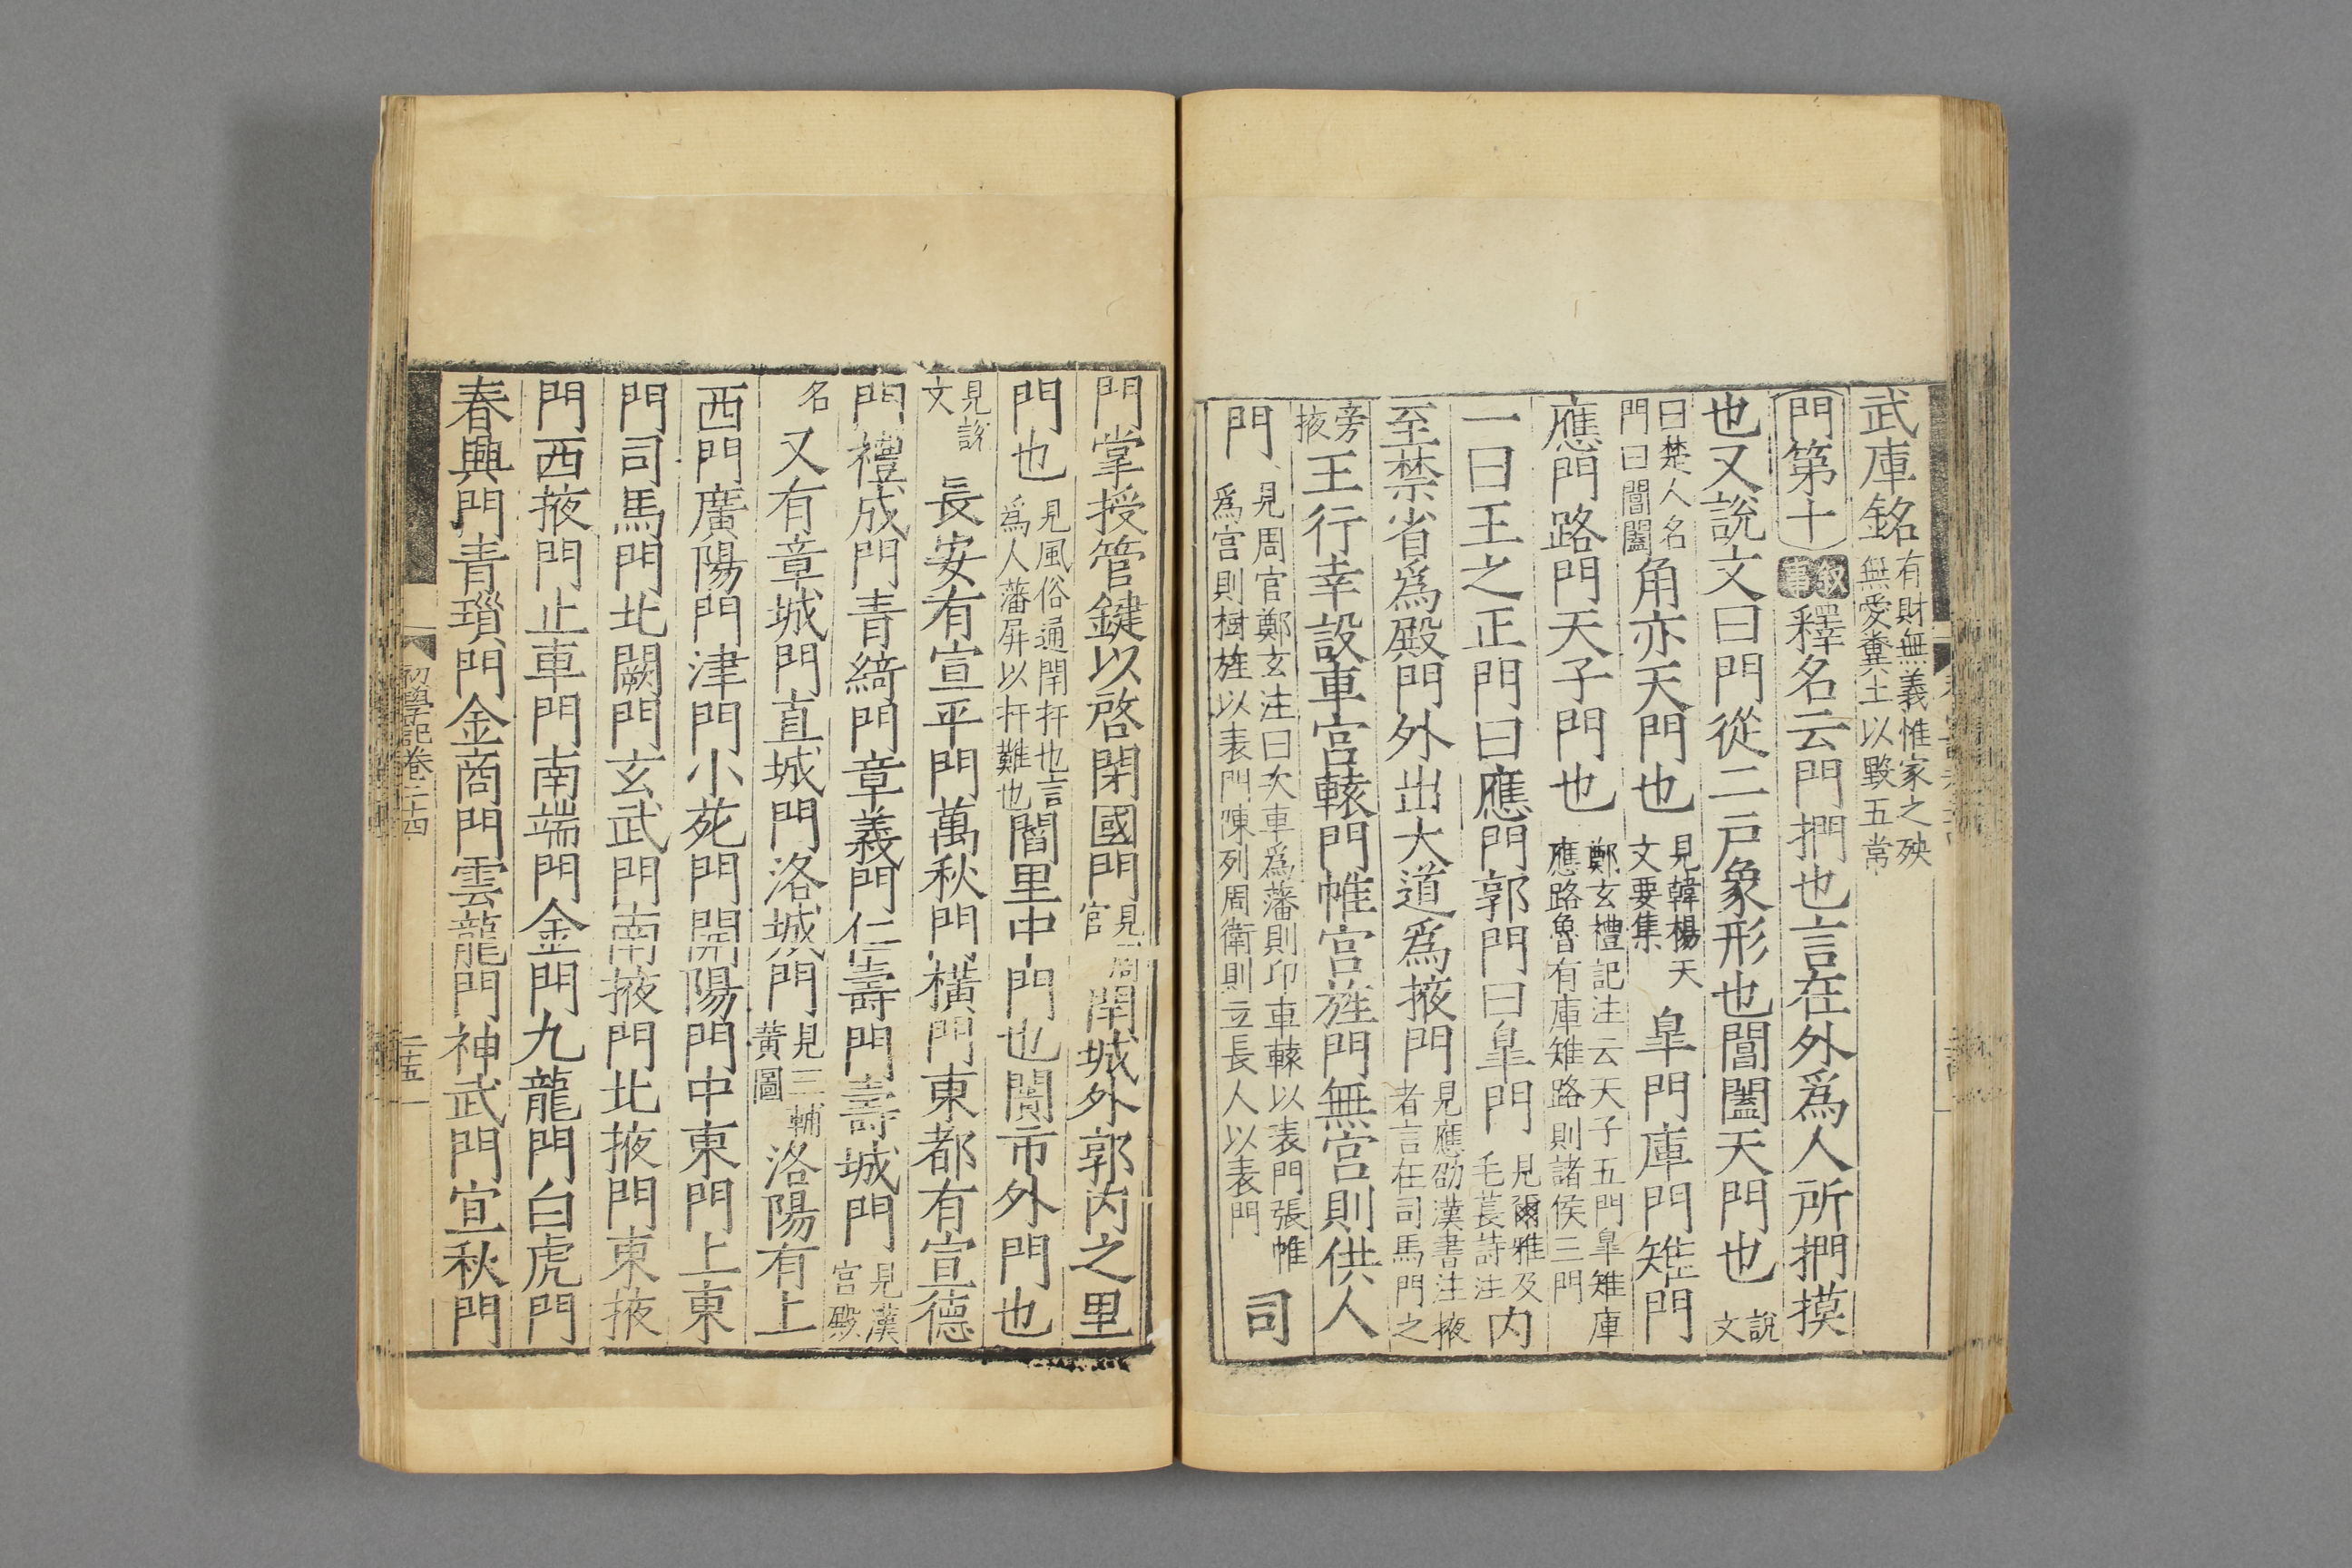 武庫銘有財無義惟家之殃無愛糞土以毀五常
門第十叙書釋名云門捫也言在外爲人所捫摸
也又説文曰門從二戸象形也閶闔天門也説文
曰楚人名門曰閶闔角亦天門也見韓楊天文要集皐門庫門雉門
應門路門天子門也鄭玄禮記注云天子五門皐雉庫應路魯有庫雉路則諸侯三門
一曰王之正門曰應門郭門曰皐門見爾雅及毛萇詩注内
至禁省爲殿門外出大道爲掖門見應劭漢書注掖者言在司馬門之
旁掖王行幸設車宫轅門帷宫旌門無宫則供人
門見周官鄭玄注曰次車爲藩則仰車轅以表門張帷爲宫則樹旌以表門陳列周衛則立長人以表門司
門掌授管鍵以啓閉國門見周官閈城外郭内之里
門也見風俗通閈扞也言爲人藩屏以扞難也閻里中門也闠市外門也
見説文長安有宣平門萬秋門横門東都有宣德
門禮成門青綺門章義門仁壽門壽城門見漢宫殿
名又有章城門直城門洛城門見三輔黄圖洛陽有上
西門廣陽門津門小苑門開陽門中東門上東
門司馬門北闕門玄武門南掖門北掖門東掖
門西掖門止車門南端門金門九龍門白虎門
春興門青瑣門金商門雲龍門神武門宣秋門
初學記卷二十四
二十五